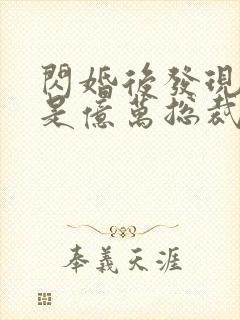 閃婚後發現
是億萬總裁
奉義天涯